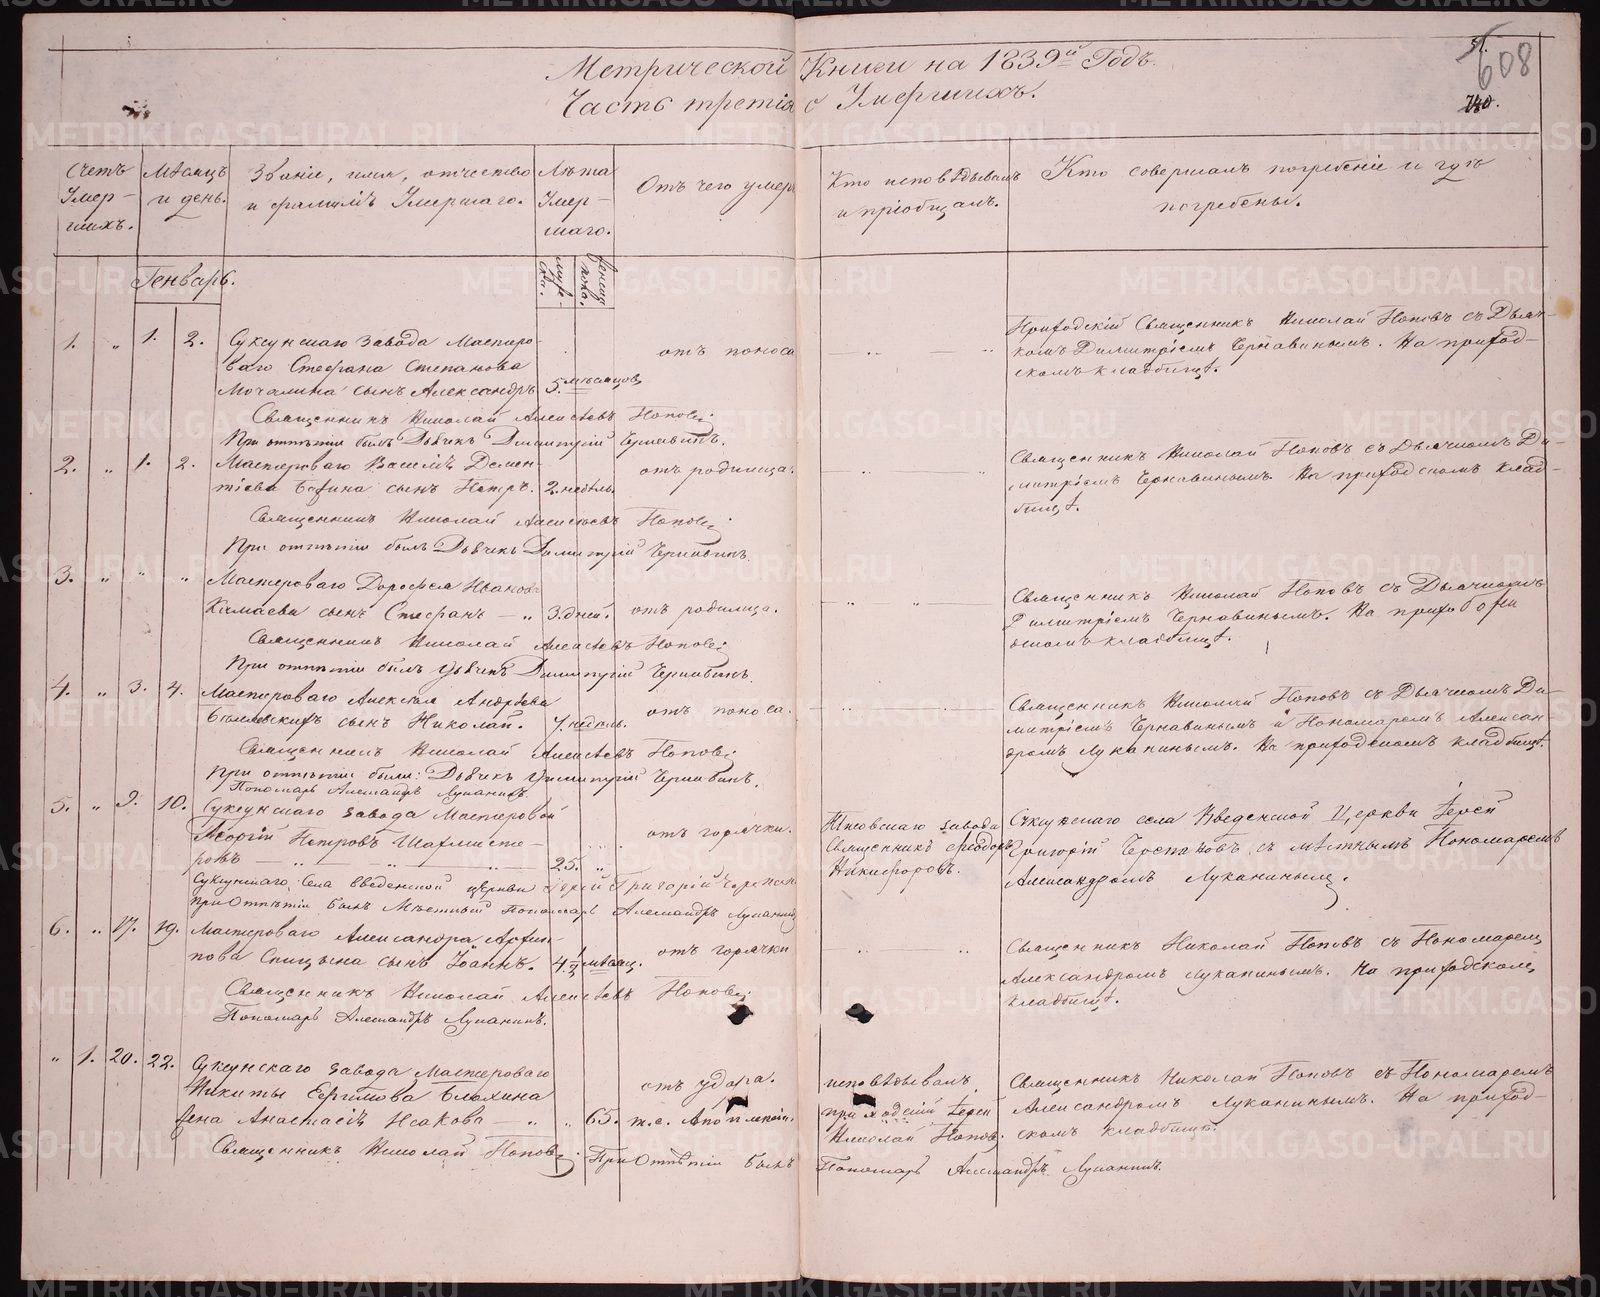 Метрической Книги на 1839й Годъ.
Часть третія о Умершихъ.
608
Счетъ Умер-
шихъ.
Мѣсяцъ
и день.
Званіе, имя, отчество
и фамилія Умершаго.
Лѣта
Умер-
шаго.
Отъ чего умеръ
Кто исповѣдывалъ
и пріобщалъ.
Кто совершалъ погребеніе и гдѣ
погребены.
Генварь.
1. " 1. 2. Суксунскаго завода Мастеро-
ваго Стефана Степанова
Мочалина сынъ Александръ 5. мѣсяцовъ
отъ поноса
Приходскій Священникъ Николай Поповъ съ Дьяч-
комъ Димитріемъ Чернавинымъ. На приход-
скомъ кладбищѣ.
Священникъ Николай Алексѣевъ Поповъ
При отпѣтіи былъ Дьячекъ Димитрій Чернавинъ.
2. " 1. 2. Мастероваго Василія Демен-
тіева сынъ Петръ. 2. недѣль.
отъ родимца.
Священникъ Николай Поповъ съ Дьячкомъ Ди-
митріемъ Чернавинымъ. На приходскомъ клад-
бищѣ.
Священникъ Николай Алексѣевъ Поповъ
При отпѣтіи былъ Дьячекъ Димитрій Чернавинъ
3. " " " Мастероваго Дорофея Иванова
Камаева сынъ Стефанъ — " 3. дней.
отъ родимца.
Священникъ Николай Поповъ съ Дьячкомъ
Димитріемъ Чернавинымъ. На приход
скомъ кладбищѣ.
Священникъ Николай Алексѣевъ Поповъ
При отпѣтіи былъ Дьячекъ Димитрій Чернавинъ
4. " 3. 4. Мастероваго Алексѣя Андрѣева
сынъ Николай. 7. недѣль.
отъ поноса.
Священникъ Николай Поповъ съ Дьячкомъ Ди-
митріемъ Чернавинымъ и Пономаремъ Алексан-
дромъ Луканинымъ. На приходскомъ кладбищѣ.
Священникъ Николай Алексѣевъ Поповъ
При отпѣтіи были: Дьячекъ Димитрій Чернавинъ,
Пономарь Александръ Луканинъ.
5. " 9. 10. Суксунскаго завода Мастеровой
Георгій Петровъ Шахмисте-
ровъ — " — " — 25. "
отъ горячки.
завода
Священникъ Ѳеодоръ
Никифоровъ.
Суксунскаго села Введенской Церкви Іерей
Григорій съ мѣстнымъ Пономаремъ
Александромъ Луканинымъ.
Суксунскаго Села Введенской церкви Іерей Григорій
При Отпѣтіи былъ Мѣстный Пономарь Александръ Луканинъ
6. " 17. 19. Мастероваго Александра Архи-
пова Спицына сынъ Іоаннъ. 4 1/2 мѣсяц.
отъ горячки
Священникъ Николай Поповъ съ Пономаремъ
Александромъ Луканинымъ. На приходскомъ
кладбищѣ.
Священникъ Николай Алексѣевъ Поповъ
Пономарь Александръ Луканинъ.
" 1. 20. 22. Суксунскаго завода Мастероваго
Никиты Ефимова Блохина
жена Анастасія Исакова — " " 65.
отъ удара.
т.е. Апоплексіи.
исповѣдывалъ
приходскій Іерей
Николай Поповъ.
Священникъ Николай Поповъ съ Пономаремъ
Александромъ Луканинымъ. На приход-
скомъ кладбищѣ.
Священникъ Николай Поповъ При Отпѣтіи былъ Пономарь Александръ Луканинъ.
METRIKI.GASO-URAL.RU